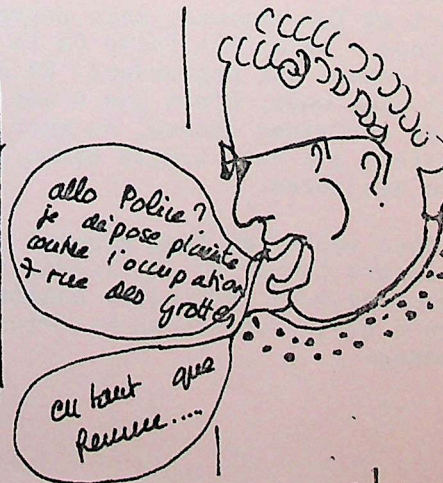 allo Police?
je dépose plainte
contre l'occupation
7 rue des Grottes
en tant que
femme.....